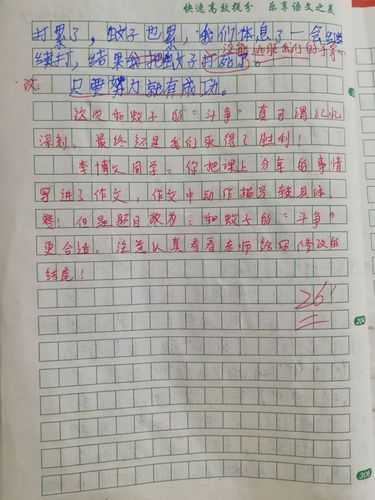 快速高效提分 乐享语文之美
打累了，蚊子也累，我们休息了一会继
没能逃脱我们的手掌心
续打，结果我把蚊子打死了。
改： 只要努力就有成功。
这次和蚊子的“斗争”真可谓记忆
深刻，最终还是我们取得了胜利！
李博文同学：你把课上分享的事情
写进了作文，作文中动作描写较具体，
赞！但是题目改为：和蚊子的“斗争”
更合适，注意认真看看老师给你修改的
结尾！
26'
204
306